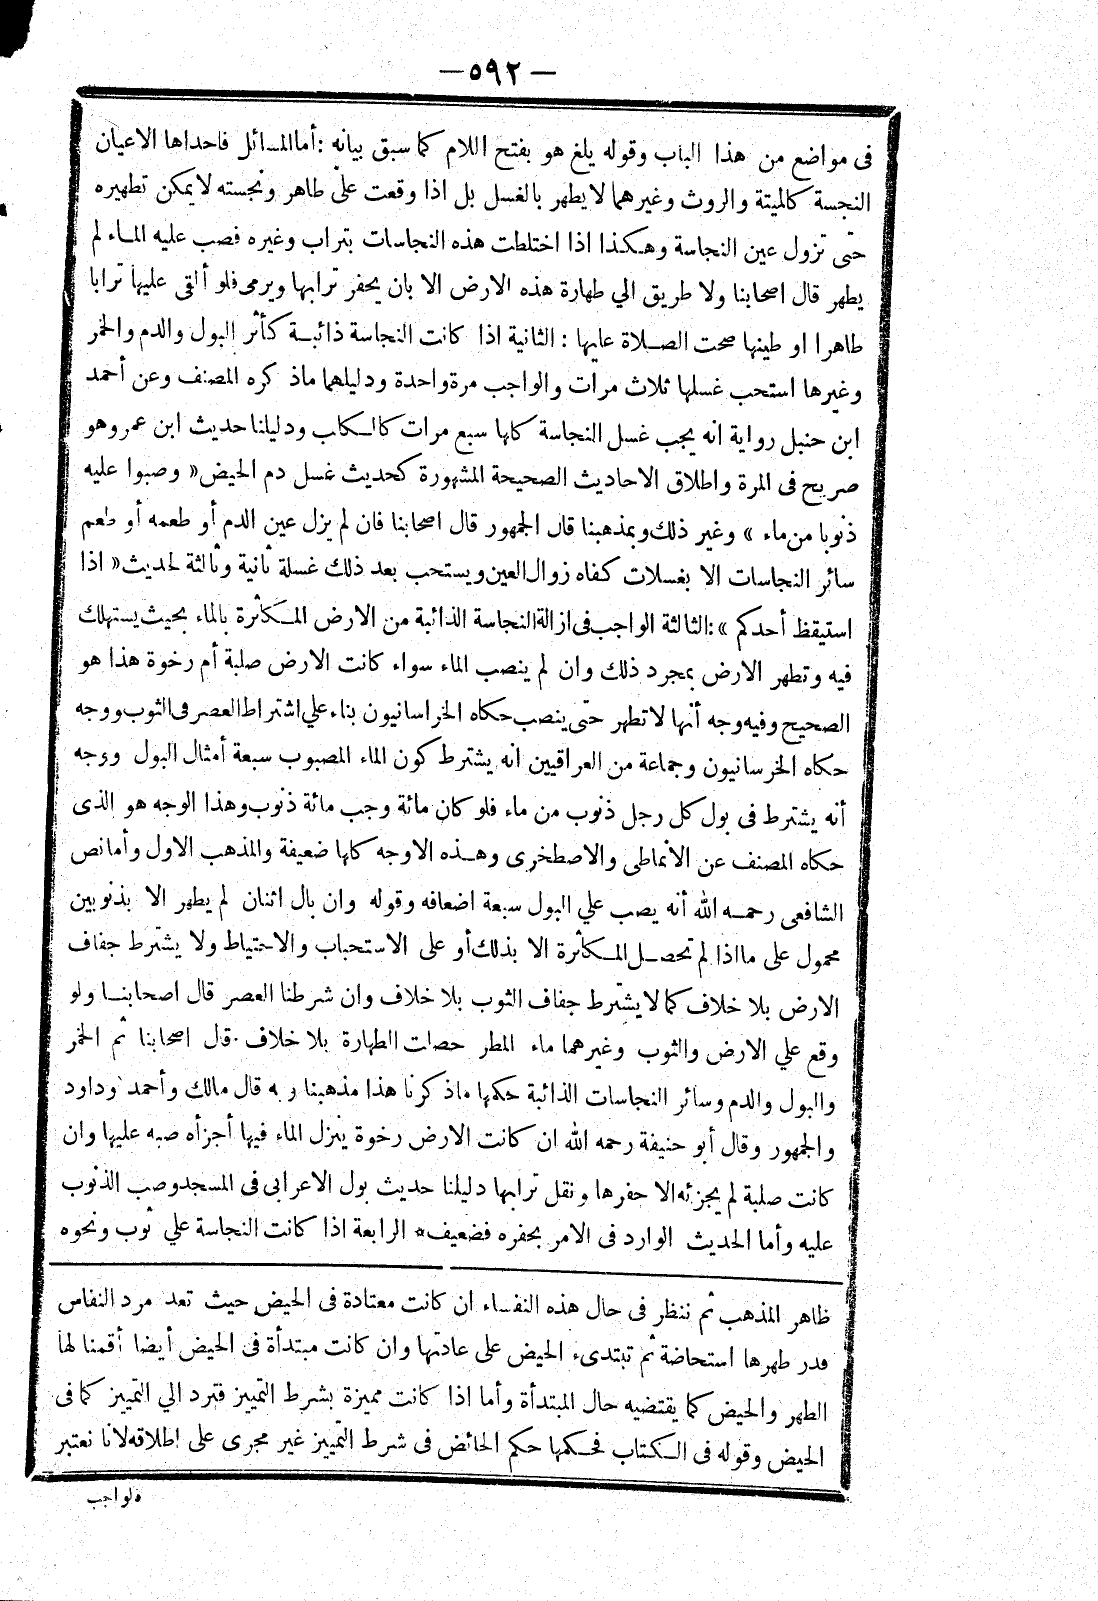 — ٥٩٢ —
فى مواضع من هذا الباب وقوله يلغ هو بفتح اللام كما سبق بيانه : أما المسائل فاحداها الاعيان
النجسة كالميتة والروث وغيرهما لا يطهر بالغسل بل اذا وقعت على طاهر ونجسته لا يمكن تطهيره
حتى تزول عين النجاسة وهكذا اذا اختلطت هذه النجاسات بتراب وغيره فصب عليه الماء لم
يطهر قال اصحابنا ولا طريق الي طهارة هذه الارض الا بان يحفر ترابها ويرمى فلو ألقى عليها ترابا
طاهرا او طينها صحت الصلاة عليها : الثانية اذا كانت النجاسة ذائبة كأثر البول والدم والخمر
وغيرها استحب غسلها ثلاث مرات والواجب مرة واحدة ودليلهما ماذ كره المصنف وعن أحمد
ابن حنبل رواية انه يجب غسل النجاسة كلها سبع مرات كالكلب ودليلنا حديث ابن عمر وهو
صريح فى المرة واطلاق الاحاديث الصحيحة المشهورة كحديث غسل دم الحيض « وصبوا عليه
ذنوبا من ماء » وغير ذلك وبمذهبنا قال الجمهور قال اصحابنا فان لم يزل عين الدم أو طعمه أو طعم
سائر النجاسات الا بغسلات كفاه زوال العين ويستحب بعد ذلك غسلة ثانية وثالثة لحديث « اذا
استيقظ أحدكم » : الثالثة الواجب فى ازالة النجاسة الذائبة من الارض المكاثرة بالماء بحيث يستهلك
فيه وتطهر الارض بمجرد ذلك وان لم ينصب الماء سواء كانت الارض صلبة أم رخوة هذا هو
الصحيح وفيه وجه أنها لا تطهر حتى ينصب حكاه الخراسانيون بناء علي اشتراط العصر فى الثوب ووجه
حكاه الخرسانيون وجماعة من العراقيين انه يشترط كون الماء المصبوب سبعة أمثال البول ووجه
أنه يشترط فى بول كل رجل ذنوب من ماء فلو كان مائة وجب مائة ذنوب وهذا الوجه هو الذى
حكاه المصنف عن الأنماطى والاصطخرى وهذه الاوجه كلها ضعيفة والمذهب الاول وأما نص
الشافعى رحمه الله أنه يصب علي البول سبعة اضعافه وقوله وان بال اثنان لم يطهر الا بذنوبين
محمول على ما اذا لم تحصل المكاثرة الا بذلك أو على الاستحباب والاحتياط ولا يشترط جفاف
الارض بلا خلاف كما لا يشترط جفاف الثوب بلا خلاف وان شرطنا العصر قال اصحابنا ولو
وقع علي الارض والثوب وغيرهما ماء المطر حصلت الطهارة بلا خلاف . قال اصحابنا ثم الخمر
والبول والدم وسائر النجاسات الذائبة حكمها ماذ كرنا هذا مذهبنا وبه قال مالك وأحمد وداود
والجمهور وقال أبو حنيفة رحمه الله ان كانت الارض رخوة ينزل الماء فيها أجزأه صبه عليها وان
كانت صلبة لم يجزئه الا حفرها ونقل ترابها دليلنا حديث بول الاعرابى فى المسجد وصب الذنوب
عليه وأما الحديث الوارد فى الامر بحفره فضعيف * الرابعة اذا كانت النجاسة علي ثوب ونحوه
ظاهر المذهب ثم ننظر فى حال هذه النفساء ان كانت معتادة فى الحيض حيث تعد مرد النفاس
قدر طهرها استحاضة ثم تبتدىء الحيض على عادتها وان كانت مبتدأة فى الحيض أيضا أقمنا لها
الطهر والحيض كما يقتضيه حال المبتدأة وأما اذا كانت مميزة بشرط التمييز فترد الي التمييز كما فى
الحيض وقوله فى الكتاب فحكمها حكم الحائض فى شرط التمييز غير مجرى على اطلاقه لانا نعتبر
فلو اجب